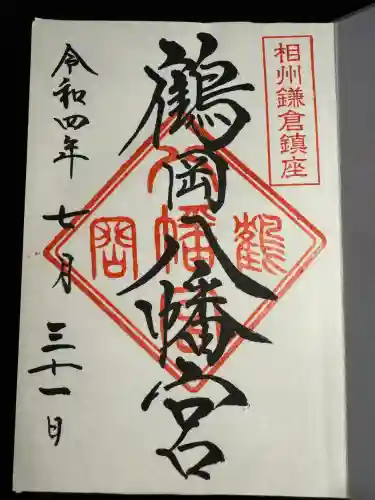 相州鎌倉鎮座
鶴岡八幡宮
令和四年 七月 三十一日